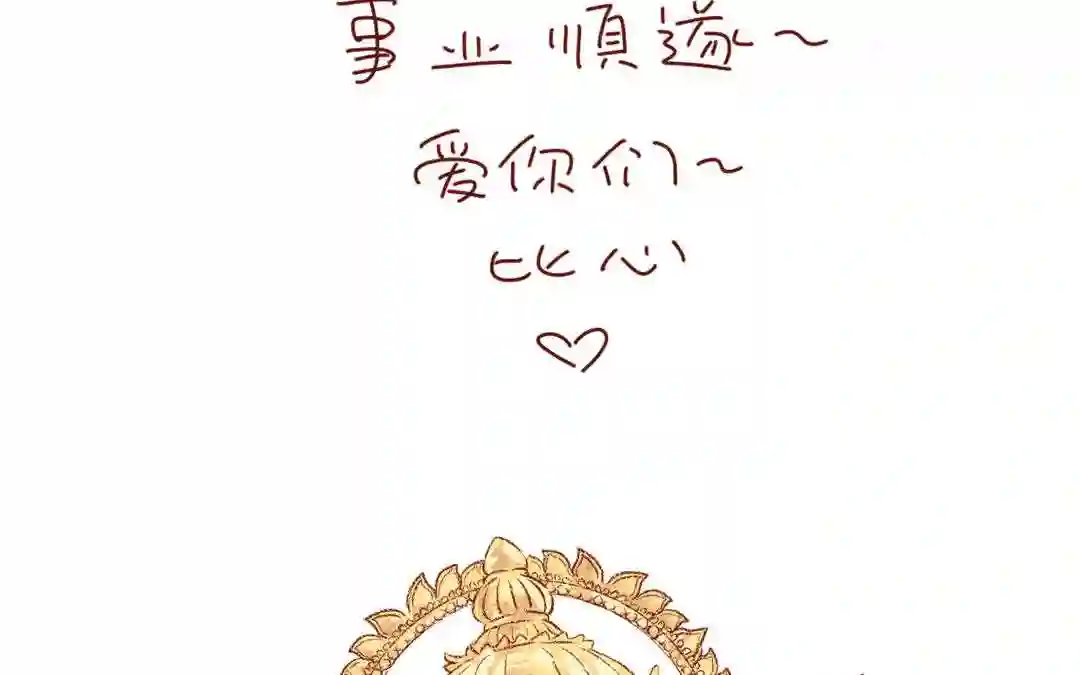 事业順遂~
爱你们~
比心
♡